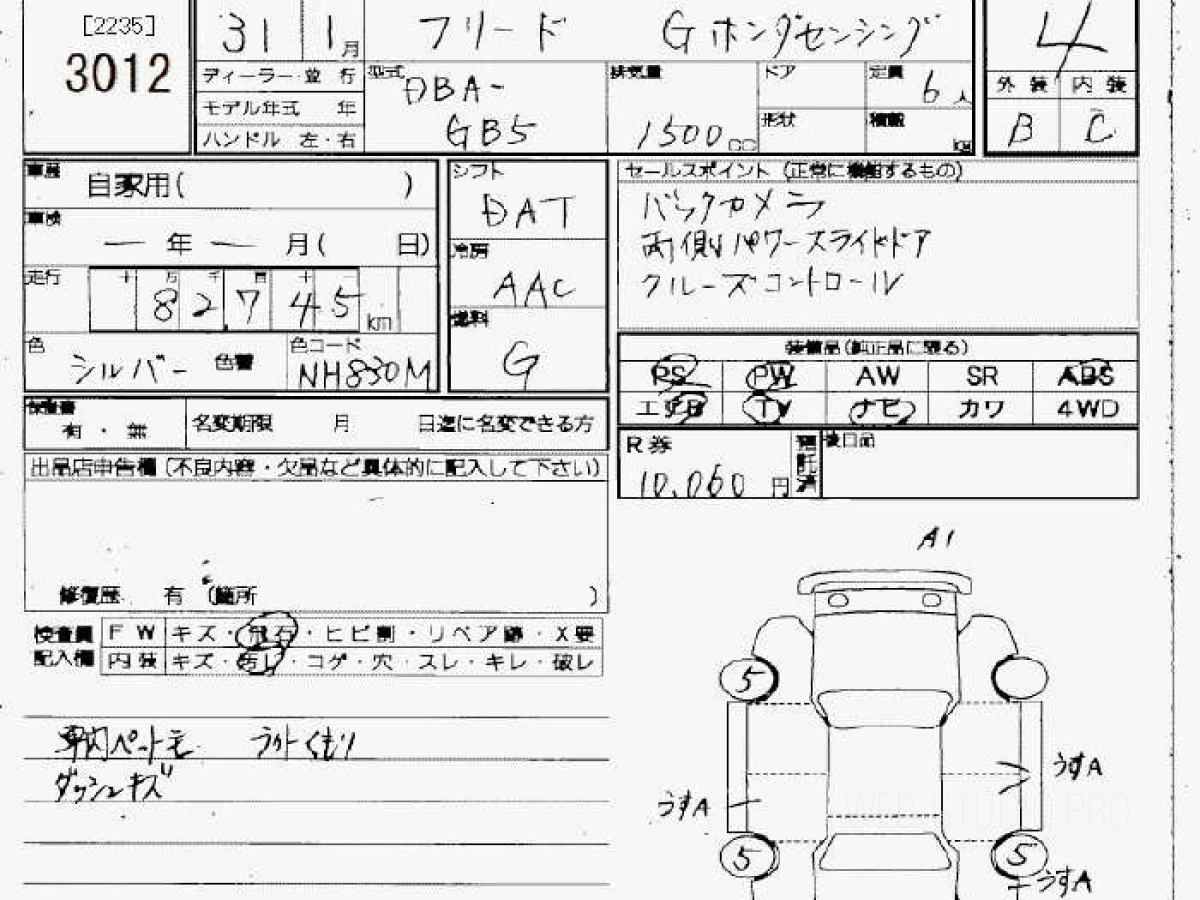 [2235]
3012
31 1月
フリード Gホンダセンシング
4
ディーラー・並行
モデル年式 年
ハンドル 左・右
型式
DBA-
GB5
排気量
1500cc
ドア
形状
定員
6人
積載
kg
外装 内装
B C
車歴
自家用( )
車検
ー 年 ー 月( 日)
走行
十 万 千 百 十 一
82,745km
色
シルバー
色替
色コード
NH830M
シフト
DAT
冷房
AAC
燃料
G
セールスポイント (正常に機能するもの)
バックカメラ
両側パワースライドドア
クルーズコントロール
装備品(純正品に限る)
PS PW AW SR ABS
エアB TV ナビ カワ 4WD
保証書
有・無
名変期限 月 日迄に名変できる方
R券
10,060円
預託済
後日品
出品店申告欄(不良内容・欠品など具体的に記入して下さい)
修復歴 有 (箇所 )
検査員
記入欄
FW キズ・飛石・ヒビ割・リペア跡・X要
内装 キズ・汚レ・コゲ・穴・スレ・キレ・破レ
車内ペット毛 ライトくもり
ダッシュキズ
A1
5
うすA
うすA
5
5
うすA
WEB STUDIO PRO